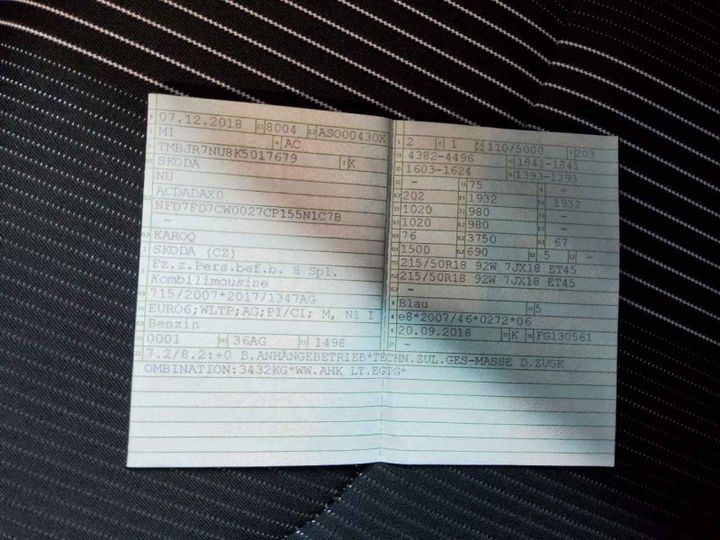 07.12.2018 8004 ASO00430X
M1 AC
TMBJR7NU8K5017679 K
SKODA
NU
ACDADAX0
NFD7FD7CW0027CP155N1C7B
–
KAROQ
SKODA (CZ)
Fz.z.Pers.bef.b. 8 Spl.
Kombilimousine
715/2007*2017/1347AG
EURO6;WLTP;AG;PI/CI; M, N1 I
Benzin
0001 36AG 1498
7.2/8.2:+0 B.ANHÄNGEBETRIEB*TECHN.ZUL.GES-MASSE D.ZUGK
OMBINATION:3432KG*WW.AHK LT.EGTG*
2 1 110/5000 203
4382-4496 1841-1841
1603-1624 1393-1393
– 75 –
202 1932 1932
1020 980
1020 980
76 3750 67
1500 690 5 –
215/50R18 92W 7JX18 ET45
215/50R18 92W 7JX18 ET45
–
Blau 5
e8*2007/46*0272*06
20.09.2018 K FG130561